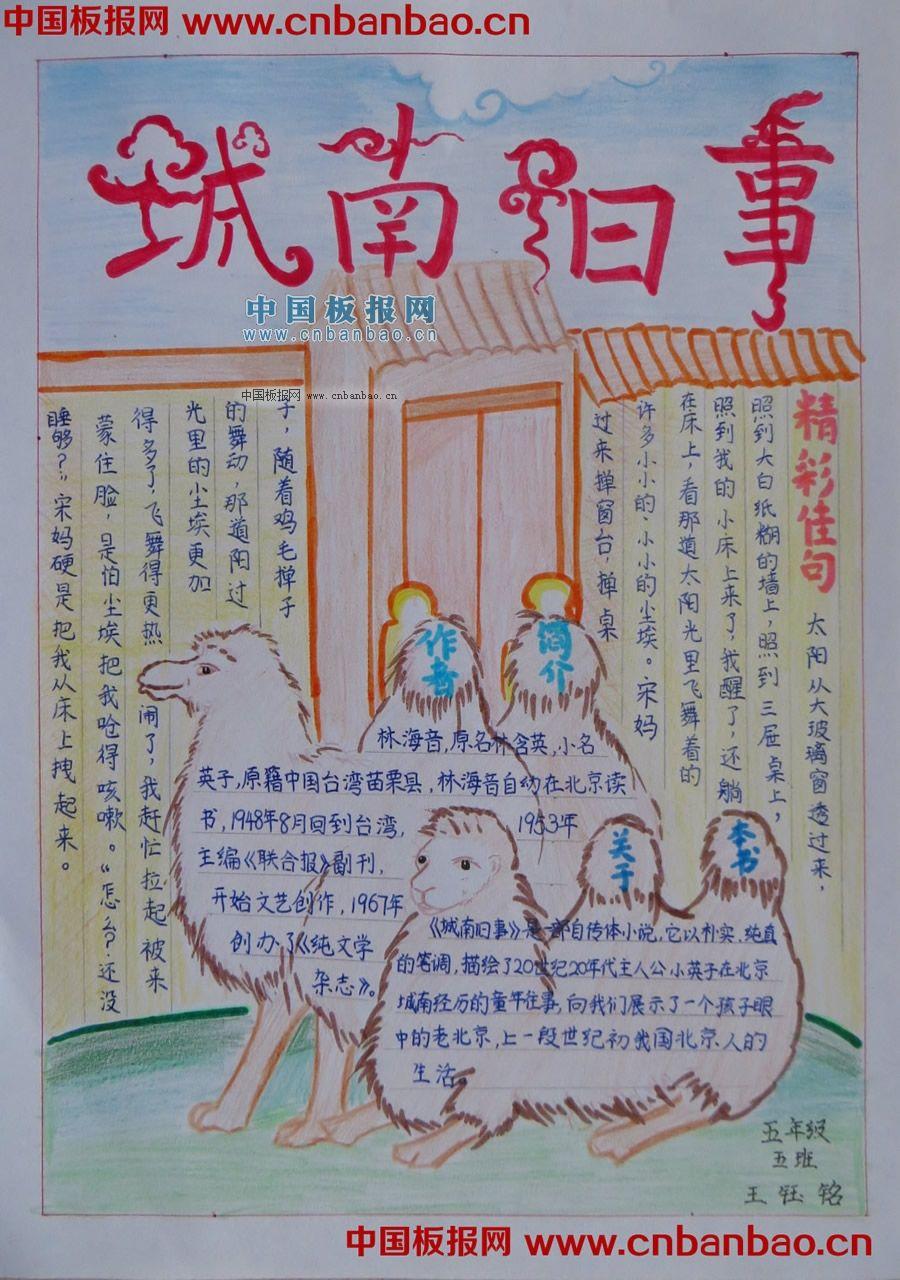 中国板报网 www.cnbanbao.cn
城南旧事
中国板报网
www.cnbanbao.cn
中国板报网 www.cnbanbao.cn
精彩佳句
太阳从大玻璃窗透过来，
照到大白纸糊的墙上，照到三屉桌上，
照到我的小床上来了，我醒了，还躺
在床上，看那道太阳光里飞舞着的
许多小小的、小小的尘埃。宋妈
过来掸窗台，掸桌
子，随着鸡毛掸子
的舞动，那道阳过
光里的尘埃更加
得多了，飞舞得更热闹了，我赶忙拉起被来
蒙住脸，是怕尘埃把我呛得咳嗽。“怎么？还没
睡够？”宋妈硬是把我从床上拽起来。
作者
简介
林海音，原名林含英，小名
英子，原籍中国台湾苗栗县，林海音自动在北京读
书，1948年8月回到台湾， 1953年
主编《联合报》副刊，
开始文艺创作，1967年
创办了《纯文学
杂志》。
关于
本书
《城南旧事》是一部自传体小说，它以朴实、纯真
的笔调，描绘了20世纪20年代主人公小英子在北京
城南经历的童年往事，向我们展示了一个孩子眼
中的老北京，上一段世纪初我国北京人的
生活。
五年级
五班
王钰铭
中国板报网 www.cnbanbao.cn